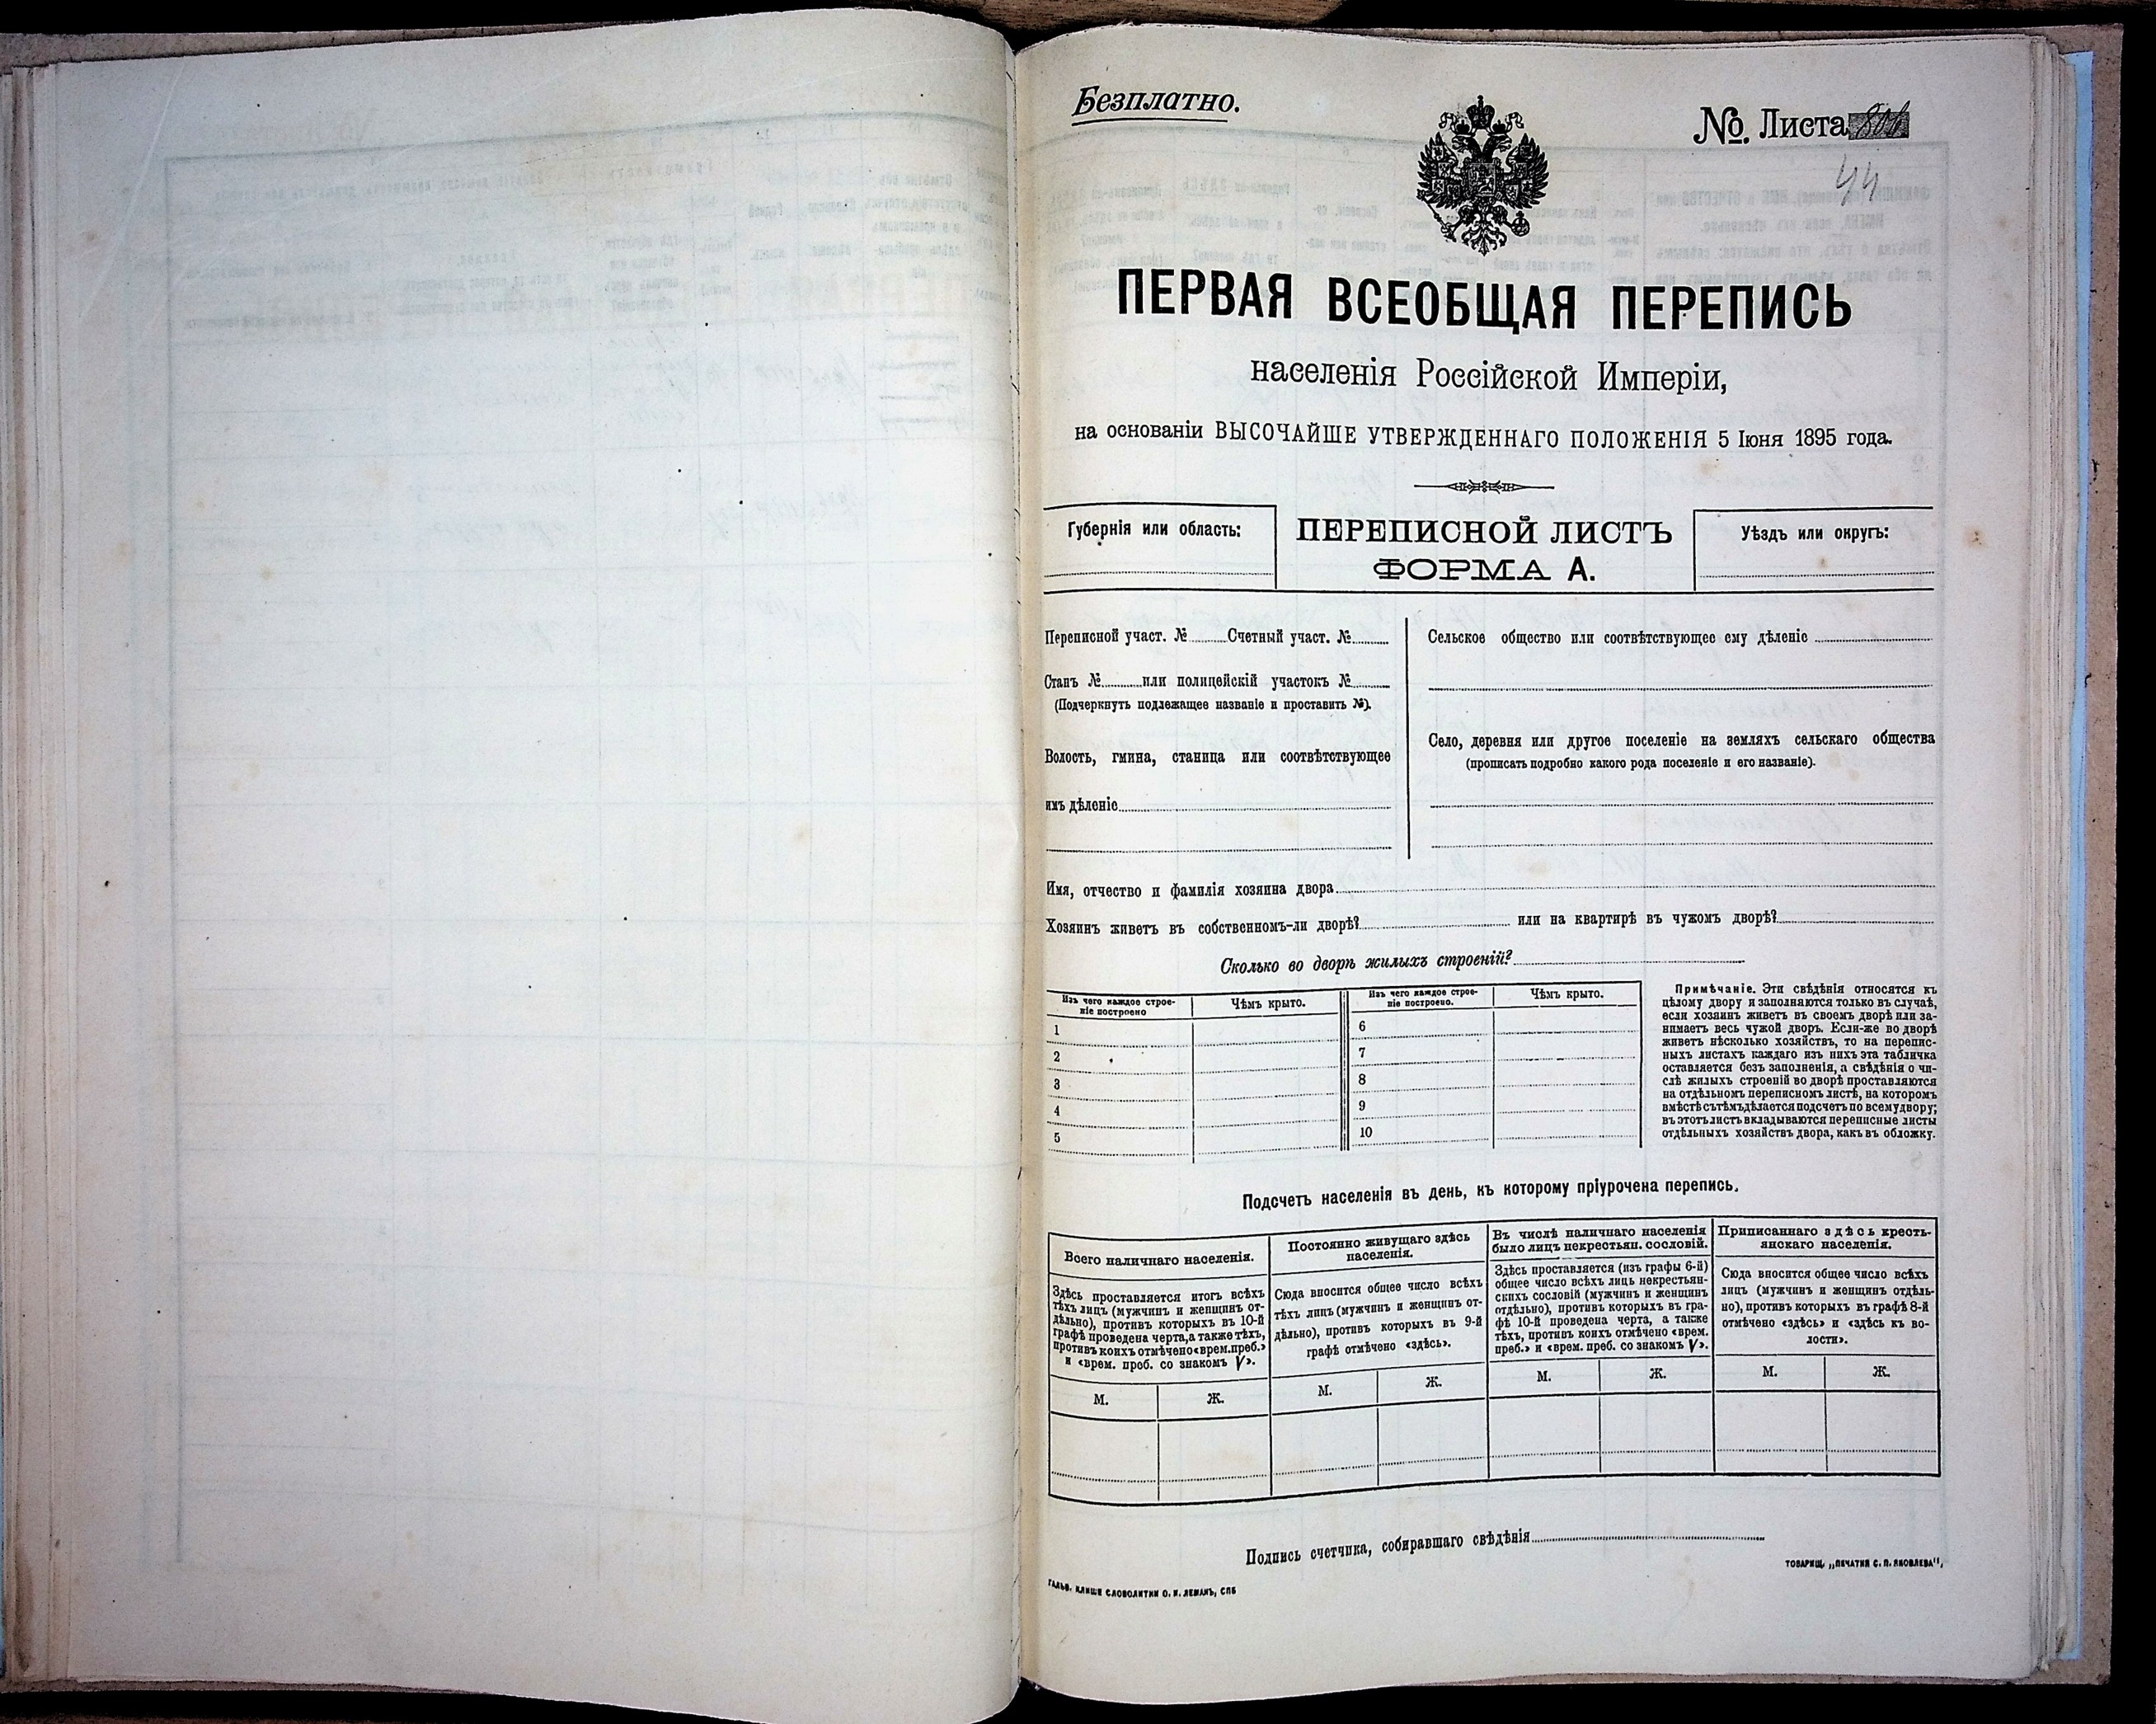 Безплатно.
No. Листа
44
ПЕРВАЯ ВСЕОБЩАЯ ПЕРЕПИСЬ
населенія Россійской Имперіи,
на основаніи ВЫСОЧАЙШЕ УТВЕРЖДЕННАГО ПОЛОЖЕНІЯ 5 Іюня 1895 года.
Губернія или область:
ПЕРЕПИСНОЙ ЛИСТЪ
ФОРМА А.
Уѣздъ или округъ:
Переписной участ. № Счетный участ. №
Станъ № или полицейскій участокъ №
(Подчеркнуть подлежащее названіе и проставить №).
Волость, гмина, станица или соотвѣтствующее
имъ дѣленіе
Сельское общество или соотвѣтствующее ему дѣленіе
Село, деревня или другое поселеніе на земляхъ сельскаго общества
(прописать подробно какого рода поселеніе и его названіе).
Имя, отчество и фамилія хозяина двора
Хозяинъ живетъ въ собственномъ-ли дворѣ? или на квартирѣ въ чужомъ дворѣ?
Сколько во дворѣ жилыхъ строеній?
Изъ чего каждое строе-
ніе построено
Чѣмъ крыто.
1
2
3
4
5
Изъ чего каждое строе-
ніе построено.
Чѣмъ крыто.
6
7
8
9
10
Примѣчаніе. Эти свѣдѣнія относятся къ
цѣлому двору и заполняются только въ случаѣ,
если хозяинъ живетъ въ своемъ дворѣ или за-
нимаетъ весь чужой дворъ. Если-же во дворѣ
живетъ нѣсколько хозяйствъ, то на перепис-
ныхъ листахъ каждаго изъ нихъ эта табличка
оставляется безъ заполненія, а свѣдѣнія о чи-
слѣ жилыхъ строеній во дворѣ проставляются
на отдѣльномъ переписномъ листѣ, на которомъ
вмѣстѣ съ тѣмъ дѣлается подсчетъ по всему двору;
въ этотъ листъ вкладываются переписные листы
отдѣльныхъ хозяйствъ двора, какъ въ обложку.
Подсчетъ населенія въ день, къ которому пріурочена перепись.
Всего наличнаго населенія.
Здѣсь проставляется итогъ всѣхъ
тѣхъ лицъ (мужчинъ и женщинъ от-
дѣльно), противъ которыхъ въ 10-й
графѣ проведена черта, а также тѣхъ,
противъ коихъ отмѣчено «врем. преб.»
и «врем. преб. со знакомъ V».
М. Ж.
Постоянно живущаго здѣсь
населенія.
Сюда вносится общее число всѣхъ
тѣхъ лицъ (мужчинъ и женщинъ от-
дѣльно), противъ которыхъ въ 9-й
графѣ отмѣчено «здѣсь».
М. Ж.
Въ числѣ наличнаго населенія
было лицъ некрестьян. сословій.
Здѣсь проставляется (изъ графы 6-й)
общее число всѣхъ лицъ некрестьян-
скихъ сословій (мужчинъ и женщинъ
отдѣльно), противъ которыхъ въ гра-
фѣ 10-й проведена черта, а также
тѣхъ, противъ коихъ отмѣчено «врем.
преб.» и «врем. преб. со знакомъ V».
М. Ж.
Приписаннаго здѣсь кресть-
янскаго населенія.
Сюда вносится общее число всѣхъ
лицъ (мужчинъ и женщинъ отдѣль-
но), противъ которыхъ въ графѣ 8-й
отмѣчено «здѣсь» и «здѣсь къ во-
лости».
М. Ж.
Подпись счетчика, собиравшаго свѣдѣнія
ГАЛЬВ. КЛИШЕ СЛОВОЛИТНИ О. И. ЛЕМАНЪ, СПБ
ТОВАРИЩ. „ПЕЧАТНЯ С. П. ЯКОВЛЕВА",